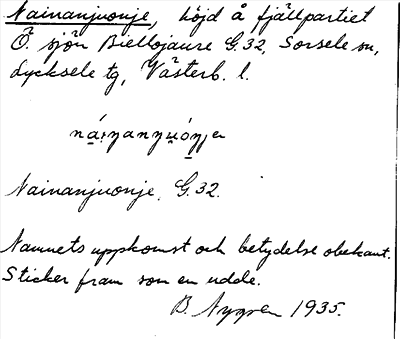 Nainanjuonje, höjd å fjällpartiet
Ö. sjön Biellojaure G.32, Sorsele sn,
Lycksele tg, Västerb. l.
Nainanjuonje, G.32.
Namnets uppkomst och betydelse obekant.
Sticker fram som en udde.
B. Nygren 1935.